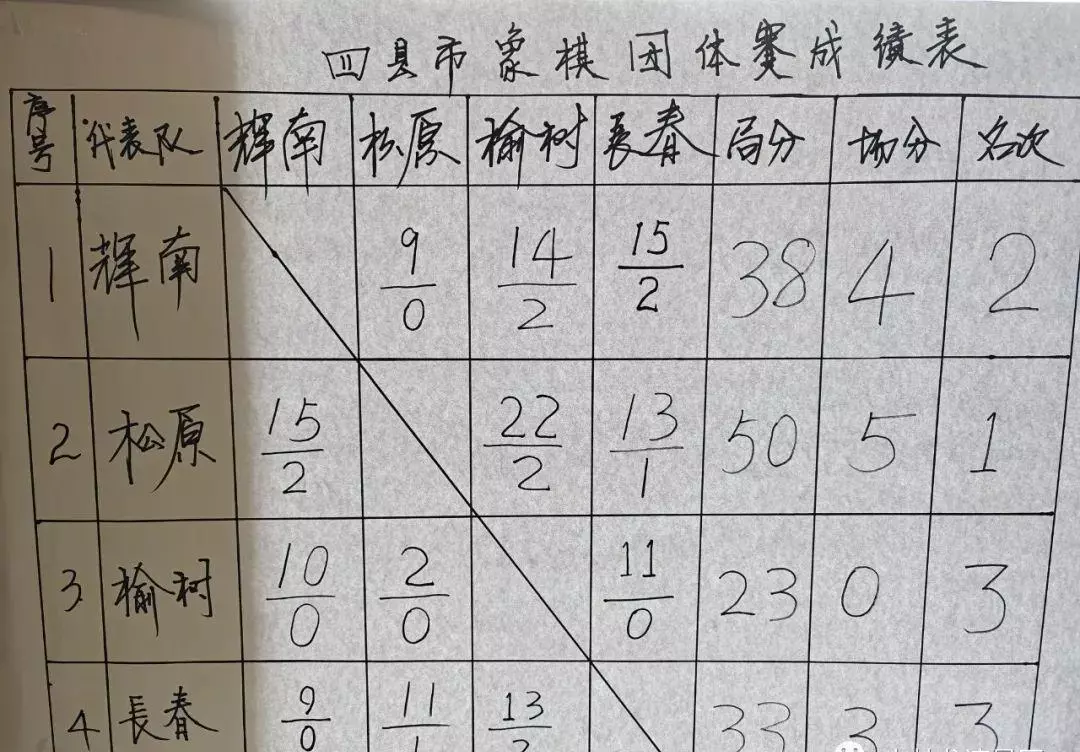 四县市象棋团体赛成绩表
序号 代表队 辉南 松原 榆树 長春 局分 场分 名次
1 辉南 9/0 14/2 15/2 38 4 2
2 松原 15/2 22/2 13/1 50 5 1
3 榆树 10/0 2/0 11/0 23 0 3
4 長春 9/0 11/1 13/2 33 3 3